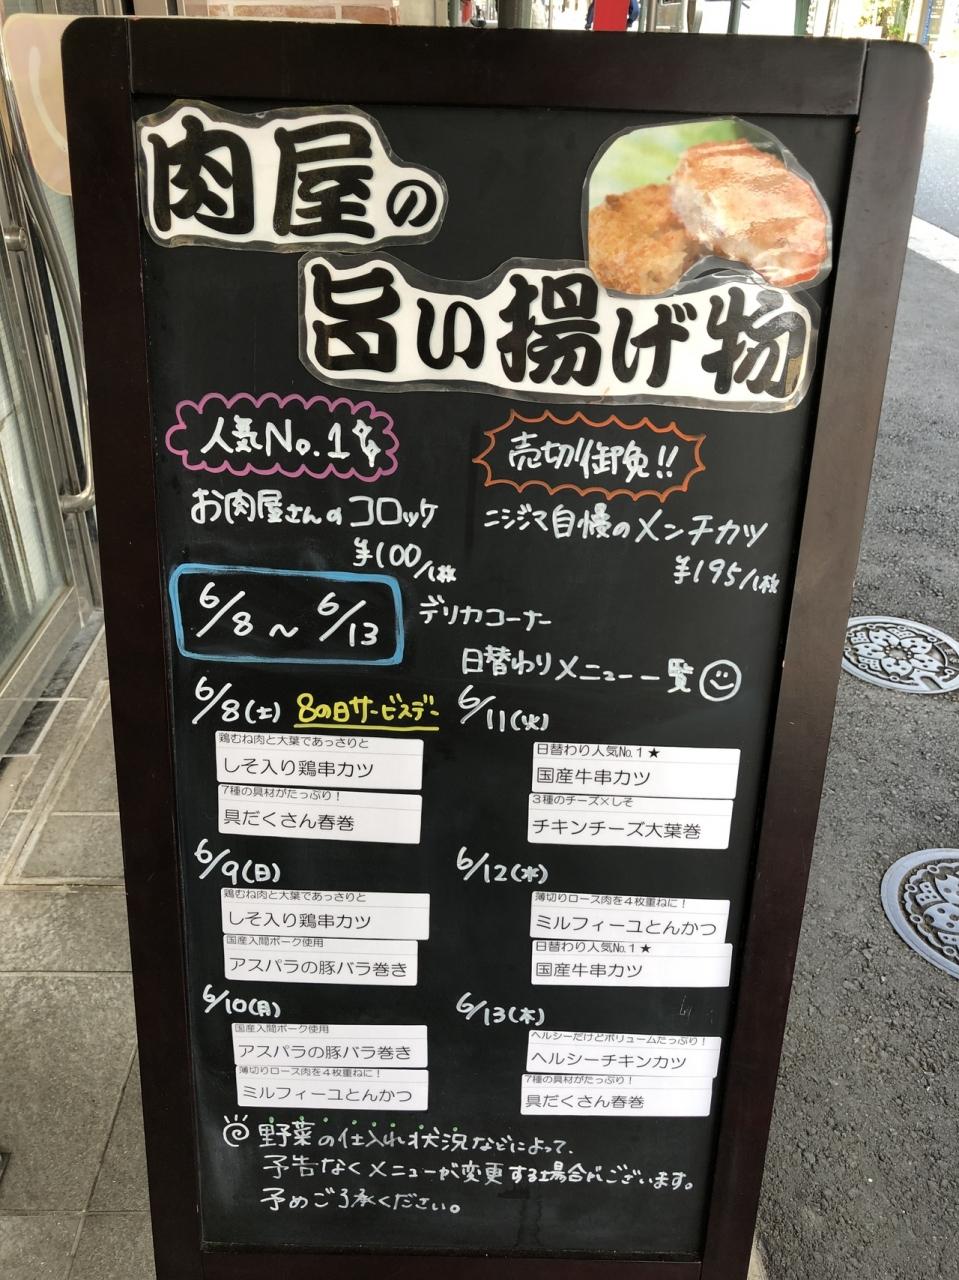 肉屋の
旨い揚げ物
人気No.1
売切御免!!
お肉屋さんのコロッケ
¥100/1枚
ニシジマ自慢のメンチカツ
¥195/1枚
6/8〜6/13
デリカコーナー
日替わりメニュー一覧
6/8(土) 8の日サービスデー
鶏むね肉と大葉であっさりと
しそ入り鶏串カツ
7種の具材がたっぷり！
具だくさん春巻
6/9(日)
鶏むね肉と大葉であっさりと
しそ入り鶏串カツ
国産入間ポーク使用
アスパラの豚バラ巻き
6/10(月)
国産入間ポーク使用
アスパラの豚バラ巻き
薄切りロース肉を4枚重ねに！
ミルフィーユとんかつ
6/11(火)
日替わり人気No.1★
国産牛串カツ
3種のチーズ×しそ
チキンチーズ大葉巻
6/12(水)
薄切りロース肉を4枚重ねに！
ミルフィーユとんかつ
日替わり人気No.1★
国産牛串カツ
6/13(木)
ヘルシーだけどボリュームたっぷり！
ヘルシーチキンカツ
7種の具材がたっぷり！
具だくさん春巻
野菜の仕入れ状況などによって、
予告なくメニューが変更する場合がございます。
予めご了承ください。